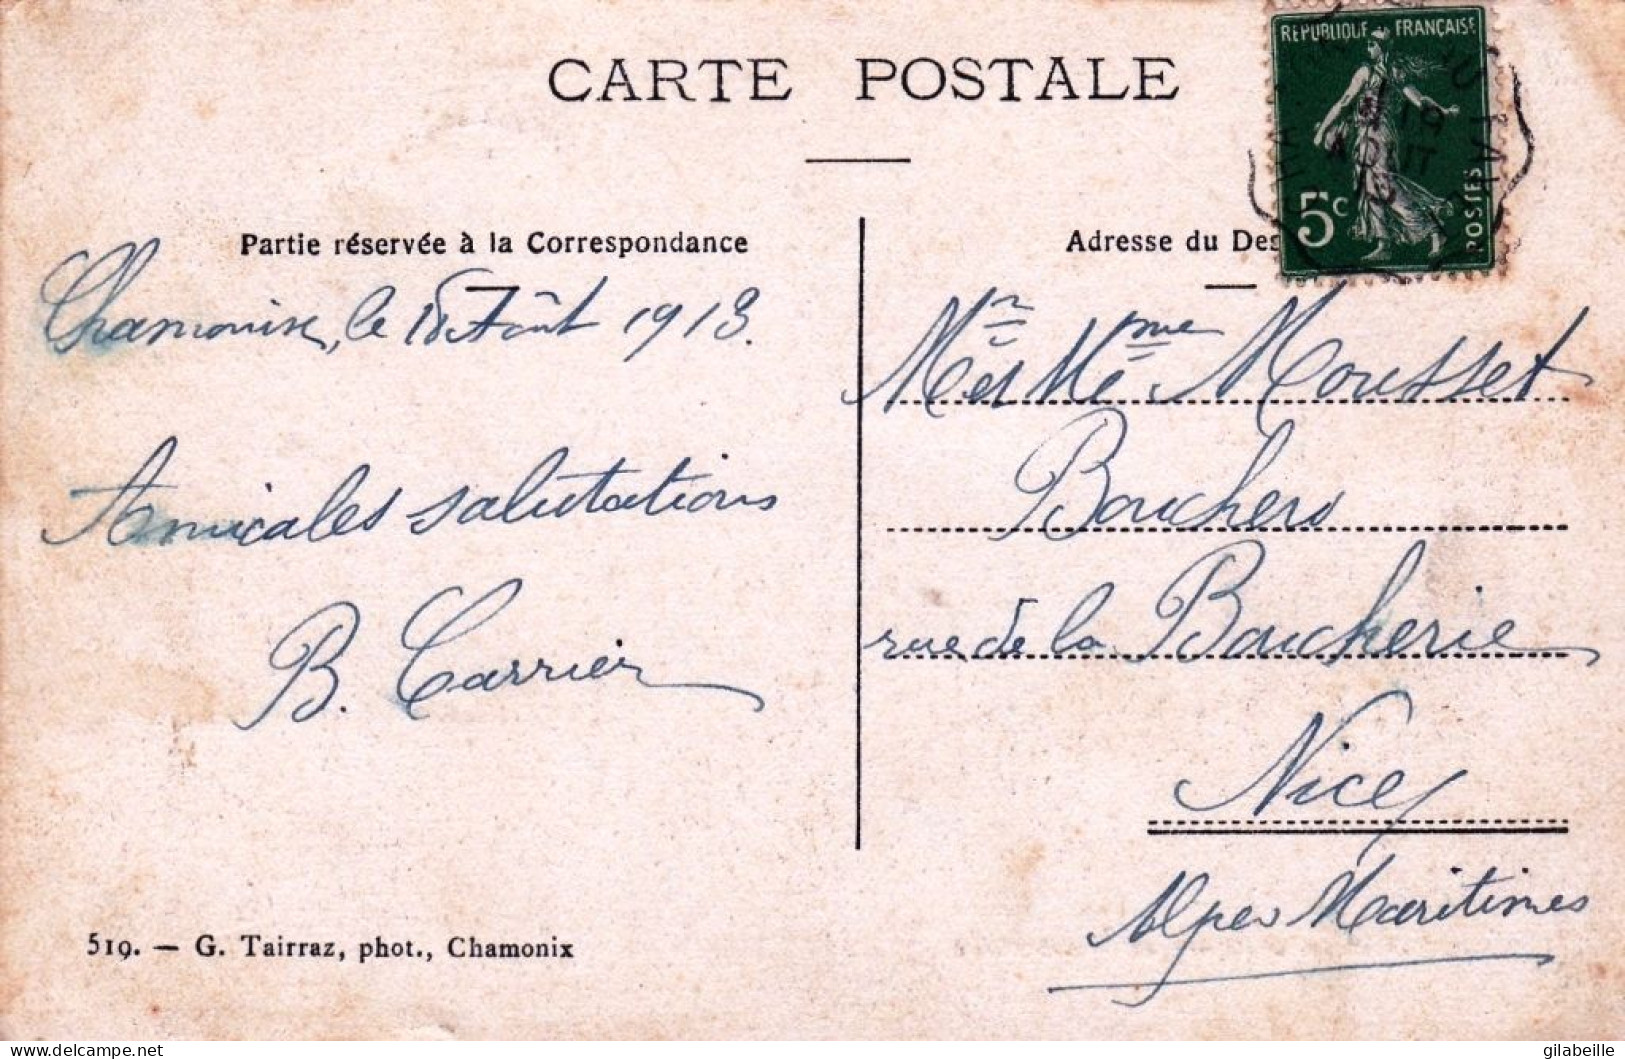 CARTE POSTALE
Partie réservée à la Correspondance
Chamonix, le 18 Août 1913.
Amicales salutations
B. Carrier
519. — G. Tairraz, phot., Chamonix
Adresse du Des
REPUBLIQUE FRANÇAISE
5c
POSTES
19
AOUT
Mr et Mme Mousset
Bouchers
rue de la Boucherie
Nice
Alpes Maritimes
delcampe.net
gilabeille